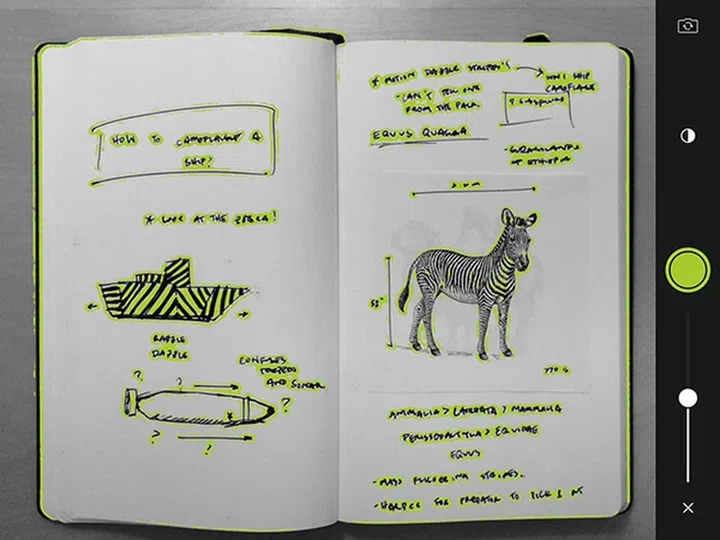 HOW TO CAMOFLAUGE A
SHIP?
* LOOK AT THE ZEBRA!
RAZZLE
DAZZLE
CONFUSES
TORPEDO
AND SONAR
?
?
?
?
?
* MOTION DAZZLE STRIPES
- CAN'T TELL ONE
FROM THE PACK
WWI SHIP
CAMOFLAGE
EQUUS QUAGGA
- GRASSLANDS
OF ETHIOPIA
ANIMALIA > > MAMMALIA
PERISSODACTYLA > EQUIDAE
EQUUS
- MASS STRIPES.
- HARDER FOR PREDATOR TO PICK